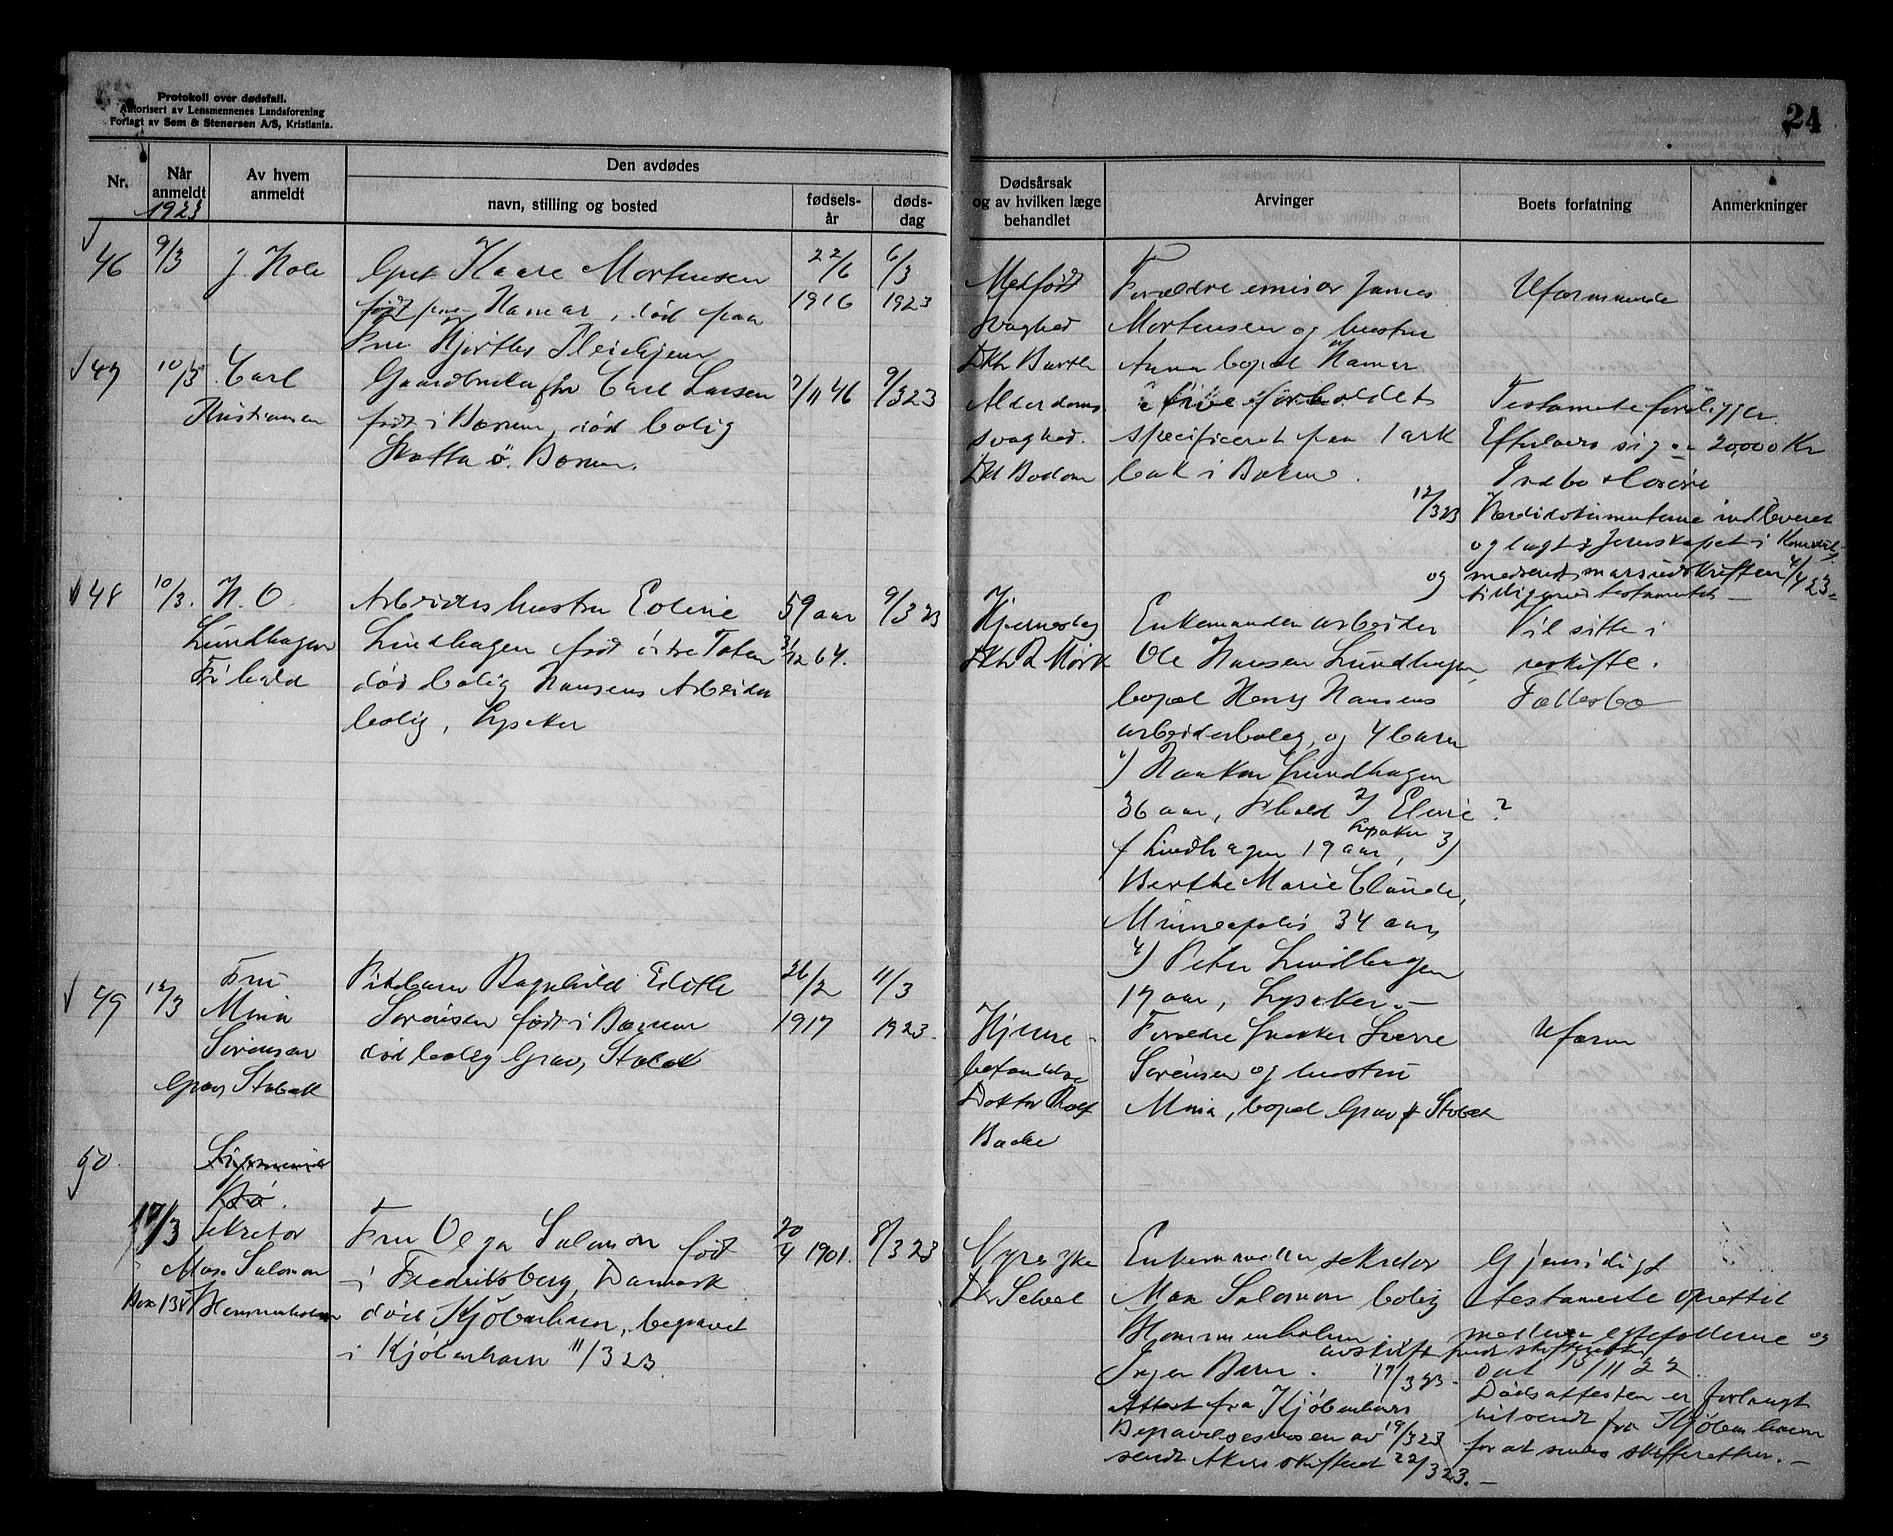 Protokoll over dødsfall.
Autorisert av Lensmennenes Landsforening
Forlagt av Sem & Stenersen A/S, Kristiania.
24
Nr.
Når anmeldt
1923
Av hvem anmeldt
Den avdødes
navn, stilling og bosted
fødsels-år
døds-dag
Dødsårsak og av hvilken læge behandlet
Arvinger
Boets forfatning
Anmerkninger
46
9/3
J. Hole
Gut Kaare Mortensen
født paa Hamar, død paa
Fru Hjorths Pleiehjem
22/6
1916
6/3
1923
Medfødt
svaghed
Dktr Barth
Forældre emisær James
Mortensen og hustru
Anna bopæl Hamar
Uformuende
47
10/3
Carl
Kristiansen
Gaardbruker fhv Carl Larsen
født i Bærum, død bolig
Skatta ö. Bærum.
7/11 46
9/3 23
Alderdoms
svaghed.
Dkt Bodom
specificeret paa 1 ark
bak i Boken.
Testamente foreligger.
Efterlader sig ca 20,000 Kr
Indbo + løsøre
12/3 23 Værdidokumenterne indleveret
og lagt i Jernskapet i
og medsendt
4/4 23
tilligemed testamentet
48
10/3.
H. O.
Lundhagen
Frihald
Arbeiderhustru Eoline
Lundhagen født östre Toten
død bolig Hansens Arbeider
bolig, Lysaker
59 aar
3/12 64.
9/3 23
Hjerneslag
Dktr R. Mørk
Enkemanden arbeider
Ole Hansen Lundhagen,
bopæl Henry Hansens
arbeiderbolig, og 4 barn
1) Haakon Lundhagen
36 aar, Frihald 2) Eline ?
Lundhagen 19 aar, Lysaker 3)
Berthe Marie Claude,
Minneapolis 34 aar
4) Peter Lundhagen
17 aar, Lysaker.—
Vil sitte i
uskifte.
Fællesbo
49
12/3
Fru
Mina
Sörensen
Grav, Stabæk
Pikebarn Ragnhild Edith
Sørensen født i Bærum
død bolig Grav, Stabæk
26/2
1917
11/3
1923.
Hjerne-
betændelse
Doktor Rolf
Backe
Forældre Snekker Sverre
Sørensen og hustru
Mina, bopæl Grav p Stabæk
Uform
50.
17/3
Sekretær
Max Salomon
Box 134 Hammenholmen
Fru Olga Salomon født
i Fredriksberg, Danmark
død Kjøbenhavn, begravet
i Kjöbenhavn 11/3 23
20/4 1901.
8/3 23
Nyresyke
Dr Scheel
Enkemanden sekretær
Max Salomon bolig
Hammenholmen
Ingen Barn.
Attest fra Kjöbenhavns
Begravelsesvæsen av 19/3 23
sendt Akers skifteret 22/3 23.—
Gjensidigt
testamente oprettet
mellem egtefællerne og
avskrift sendt skifteretten
17/3 23
dat 13/11 22
Dødsattesten er forlangt
tilsendt fra Kjøbenhavn
for at sendes skifteretten.—